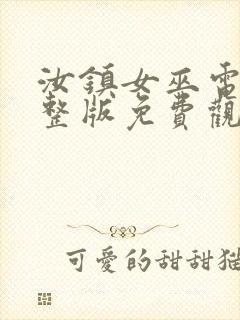 汝鎮女巫電
整版免費觀
可愛的甜甜貓